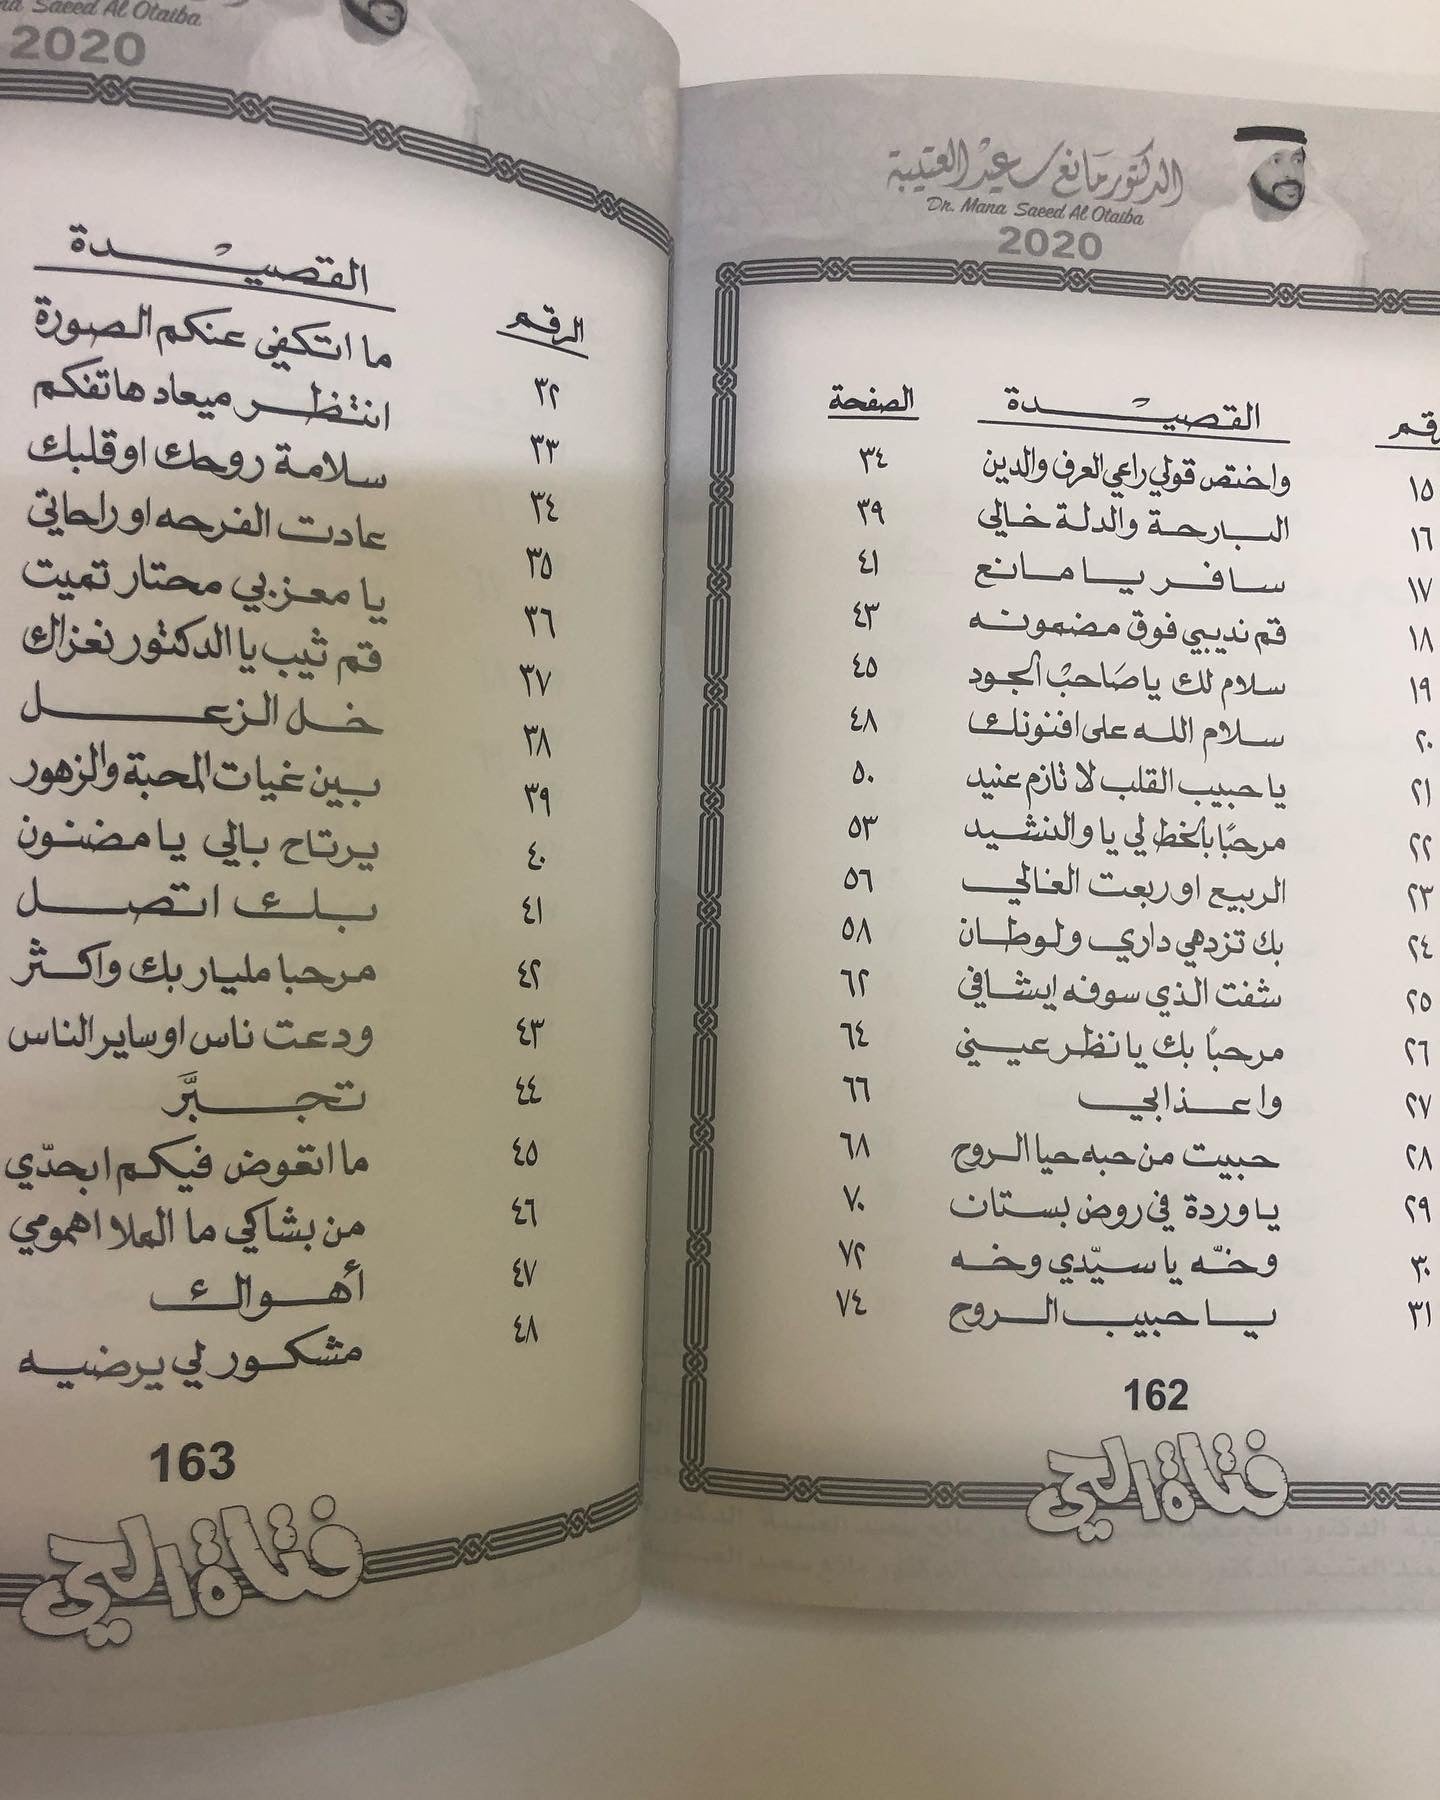 الدكتور مانع سعيد العتيبة
Dr. Mana Saeed Al Otaiba
2020
القصيدة الصفحة
١٥ واختص قولي راعي العرف والدين ٣٤
١٦ البارحة والدلة خالي ٣٩
١٧ سافر يا مانع ٤١
١٨ قم نديبي فوق مضمونه ٤٣
١٩ سلام لك يا صَاحبْ الجود ٤٥
٢٠ سلام الله على افنونك ٤٨
٢١ يا حبيب القلب لا تازم عنيد ٥٠
٢٢ مرحبًا بالخط لي يا والنشيد ٥٣
٢٣ الربيع اوربعت الغالي ٥٦
٢٤ بك تزدهي داري ولوطان ٥٨
٢٥ شفت الذي سوفه ايشافي ٦٢
٢٦ مرحبًا بك يا نظر عيني ٦٤
٢٧ واعذابي ٦٦
٢٨ حبيت من حبه حيا الروح ٦٨
٢٩ يا وردة في روض بستان ٧٠
٣٠ وخّه يا سيّدي وخه ٧٢
٣١ يا حبيب الروح ٧٤
162
فتاة الحي
Saeed Al Otaiba
2020
الرقم القصيدة
٣٢ ما اتكفي عنكم الصورة
٣٣ انتظر ميعاد هاتفكم
٣٤ سلامة روحك اوقلبك
٣٥ عادت الفرحه او راحاتي
٣٦ يا معزبي محتار تميت
٣٧ قم ثيب يا الدكتور نغزاك
٣٨ خل الزعل
٣٩ بين غيات المحبة والزهور
٤٠ يرتاح بالي يا مضنون
٤١ بك اتصل
٤٢ مرحبا مليار بك واكثر
٤٣ ودعت ناس اوساير الناس
٤٤ تجبَّر
٤٥ ما اتعوض فيكم ابحدّي
٤٦ من بشاكي ما الملا اهمومي
٤٧ أهواك
٤٨ مشكور لي يرضيه
163
فتاة الحي